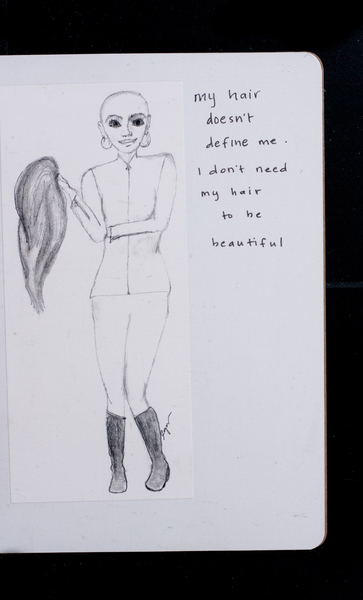 my hair
doesn't
define me.
I don't need
my hair
to be
beautiful